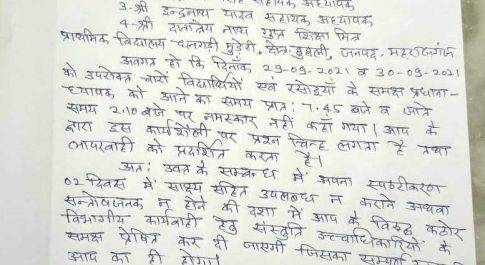 3-श्री इन्द्रनाथ यादव सहायक अध्यापक
4-श्री दत्तात्रेय नाथ गुप्त शिक्षा मित्र
प्राथमिक विद्यालय मुड़ेरी, क्षेत्र-घुघली, जनपद, महराजगंज
अवगत हो कि दिनांक 29-09-2021 व 30-09-2021
को उपरोक्त चारों विद्यार्थियों एवं रसोइयों के समक्ष प्रधाना-
ध्यापक को आने का समय प्रातः 7.45 बजे व जाते
समय 2.10 बजे पर नमस्कार नहीं कहा गया। आप के
द्वारा इस कार्यशैली पर प्रश्न चिन्ह लगता है तथा
लापरवाही को प्रदर्शित करता है।
अतः उक्त के सम्बन्ध में अपना स्पष्टीकरण
02 दिवस में साक्ष्य सहित उपलब्ध न कराने अथवा
सन्तोषजनक न होने की दशा में आप के विरुद्ध कठोर
विभागीय कार्यवाही हेतु संस्तुति उच्चाधिकारियों के
समक्ष प्रेषित कर दी जाएगी जिसका सम्पूर्ण
आप का ही होगा।